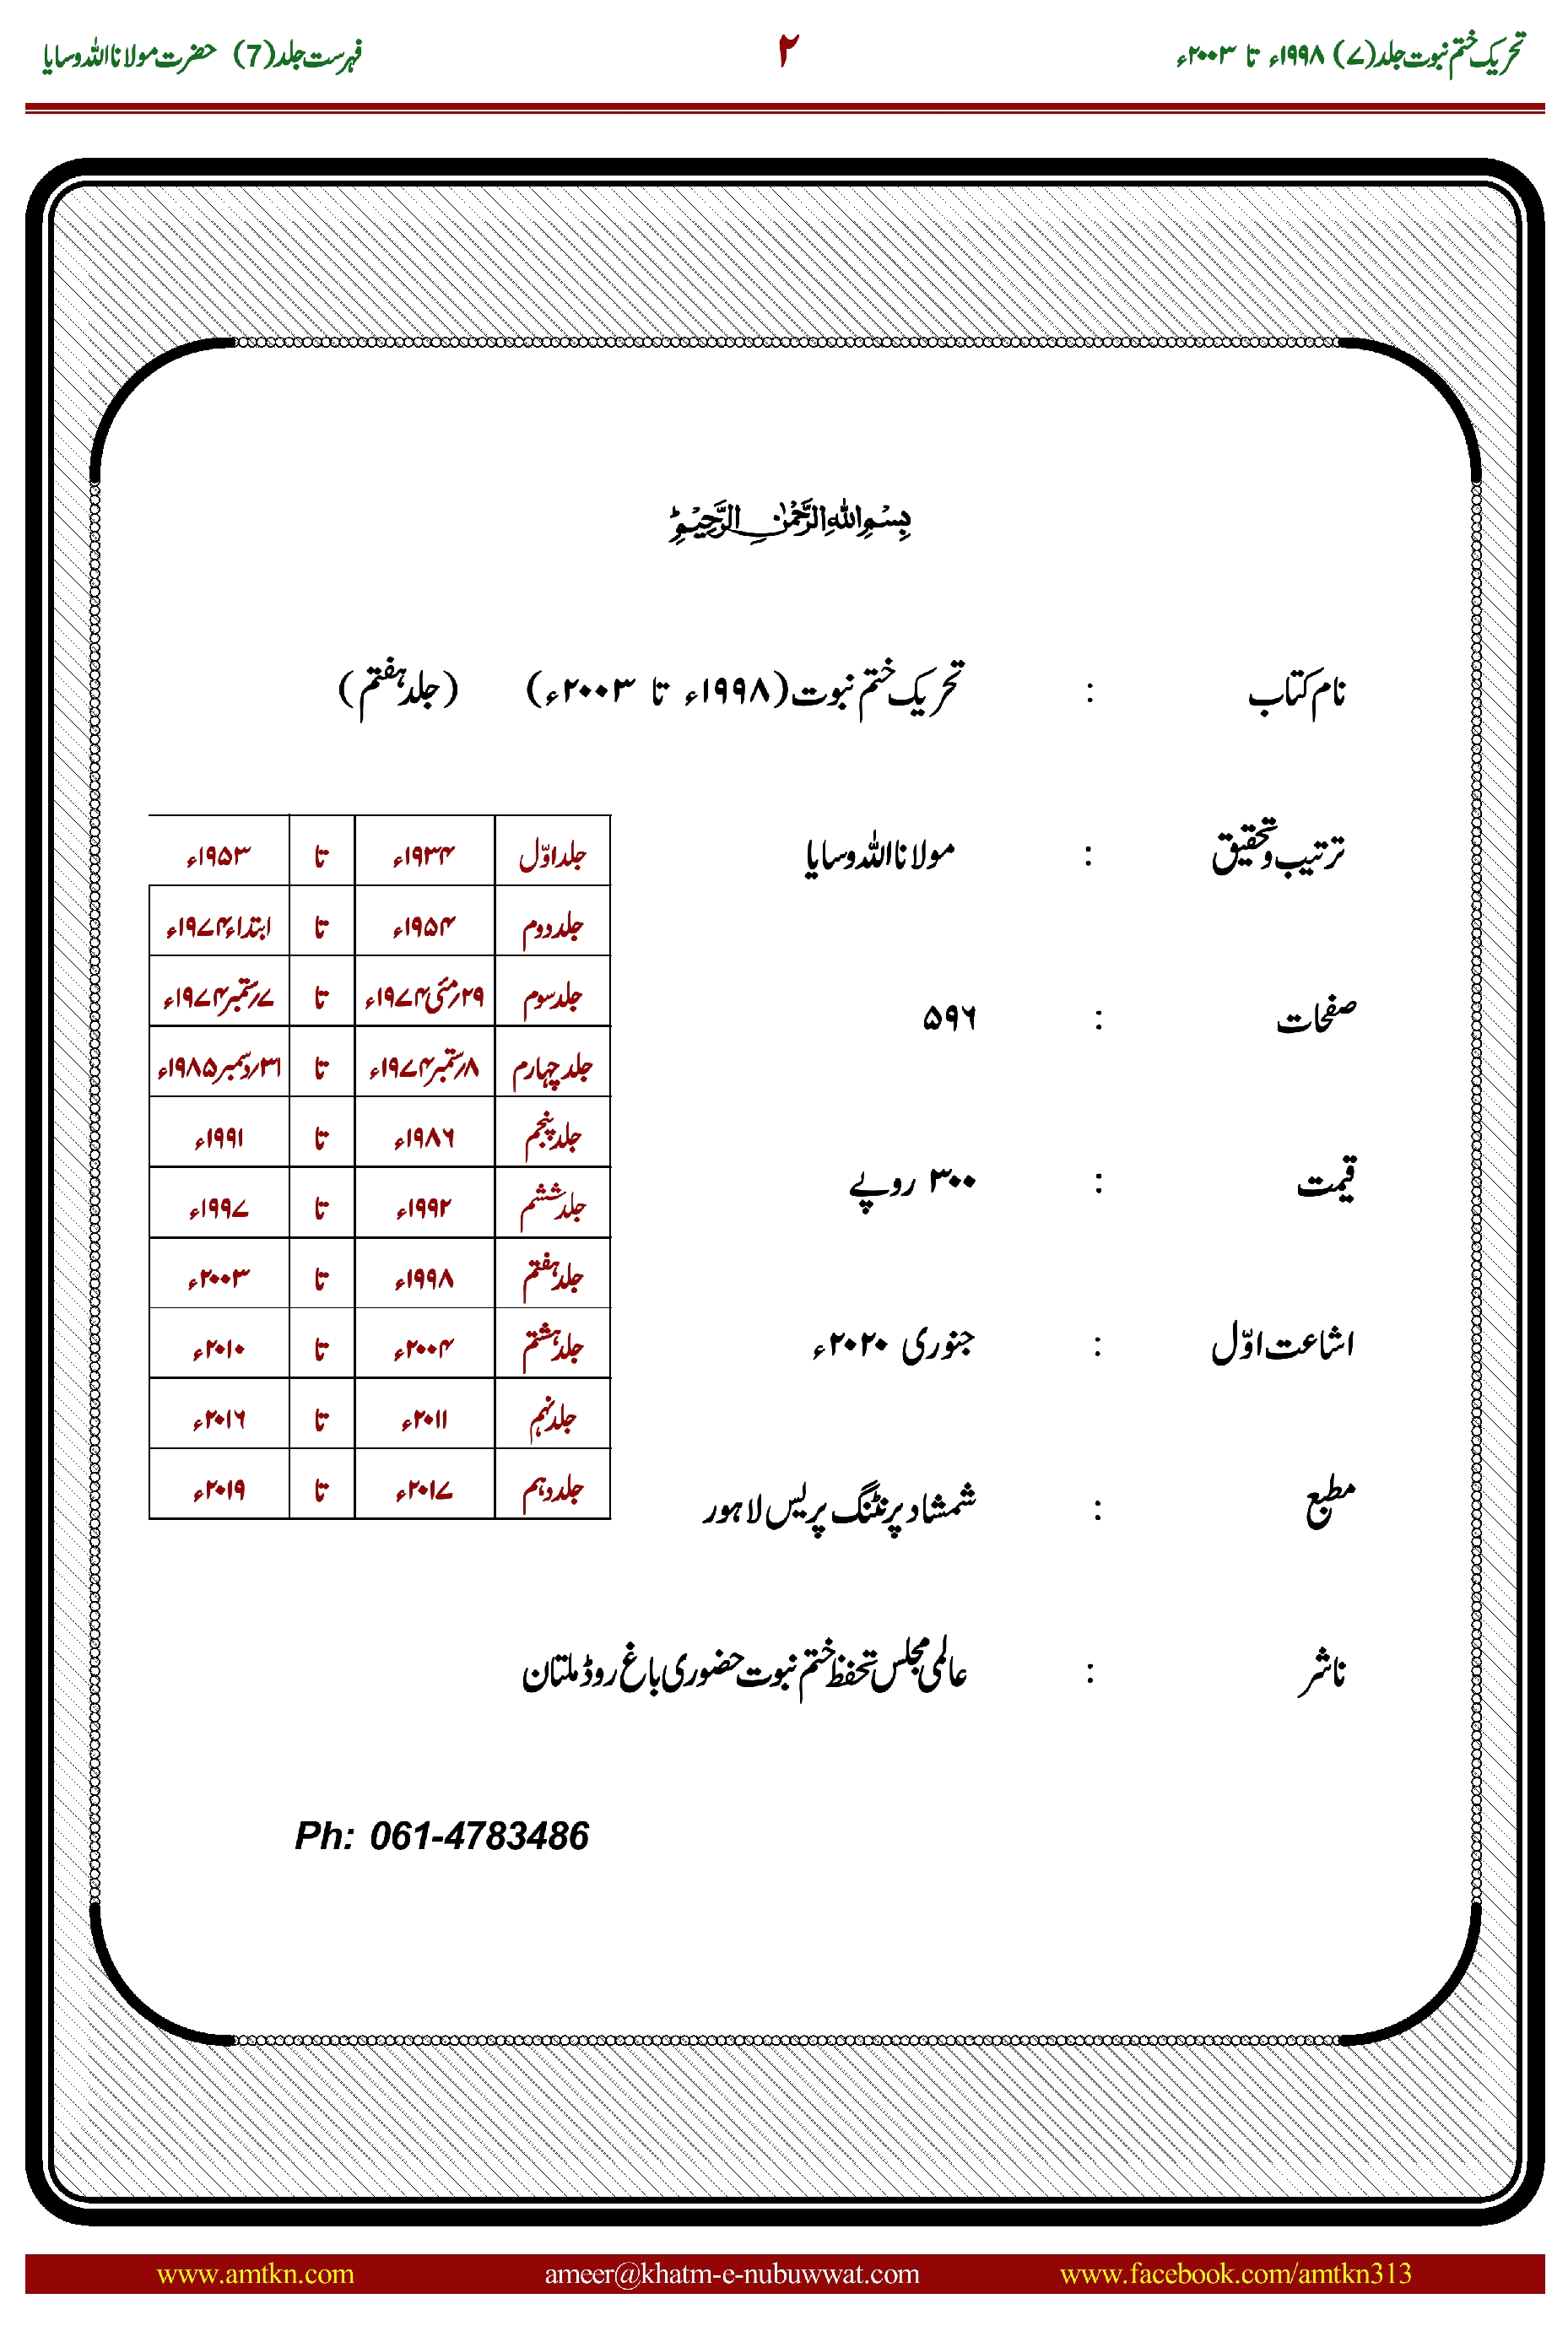 تحریک ختم نبوت جلد(۷) ۱۹۹۸ء تا ۲۰۰۳ء ۲ فہرست جلد(7) حضرت مولانا اللہ وسایا
بِسْمِ اللهِ الرَّحْمٰنِ الرَّحِيْمِ
نام کتاب : تحریک ختم نبوت (۱۹۹۸ء تا ۲۰۰۳ء) (جلد ہفتم)
ترتیب و تحقیق : مولانا اللہ وسایا
صفحات : ۵۹۶
قیمت : ۳۰۰ روپے
اشاعت اوّل : جنوری ۲۰۲۰ء
مطبع : شمشاد پرنٹنگ پریس لاہور
جلد اوّل ۱۹۳۴ء تا ۱۹۵۳ء
جلد دوم ۱۹۵۴ء تا ابتداء ۱۹۷۴ء
جلد سوم ۲۹؍مئی ۱۹۷۴ء تا ۷؍ستمبر ۱۹۷۴ء
جلد چہارم ۸؍ستمبر ۱۹۷۴ء تا ۳۱؍دسمبر ۱۹۸۵ء
جلد پنجم ۱۹۸۶ء تا ۱۹۹۱ء
جلد ششم ۱۹۹۲ء تا ۱۹۹۷ء
جلد ہفتم ۱۹۹۸ء تا ۲۰۰۳ء
جلد ہشتم ۲۰۰۴ء تا ۲۰۱۰ء
جلد نہم ۲۰۱۱ء تا ۲۰۱۶ء
جلد دہم ۲۰۱۷ء تا ۲۰۱۹ء
ناشر : عالمی مجلس تحفظ ختم نبوت حضوری باغ روڈ ملتان
Ph: 061-4783486
www.amtkn.com ameer@khatm-e-nubuwwat.com www.facebook.com/amtkn313